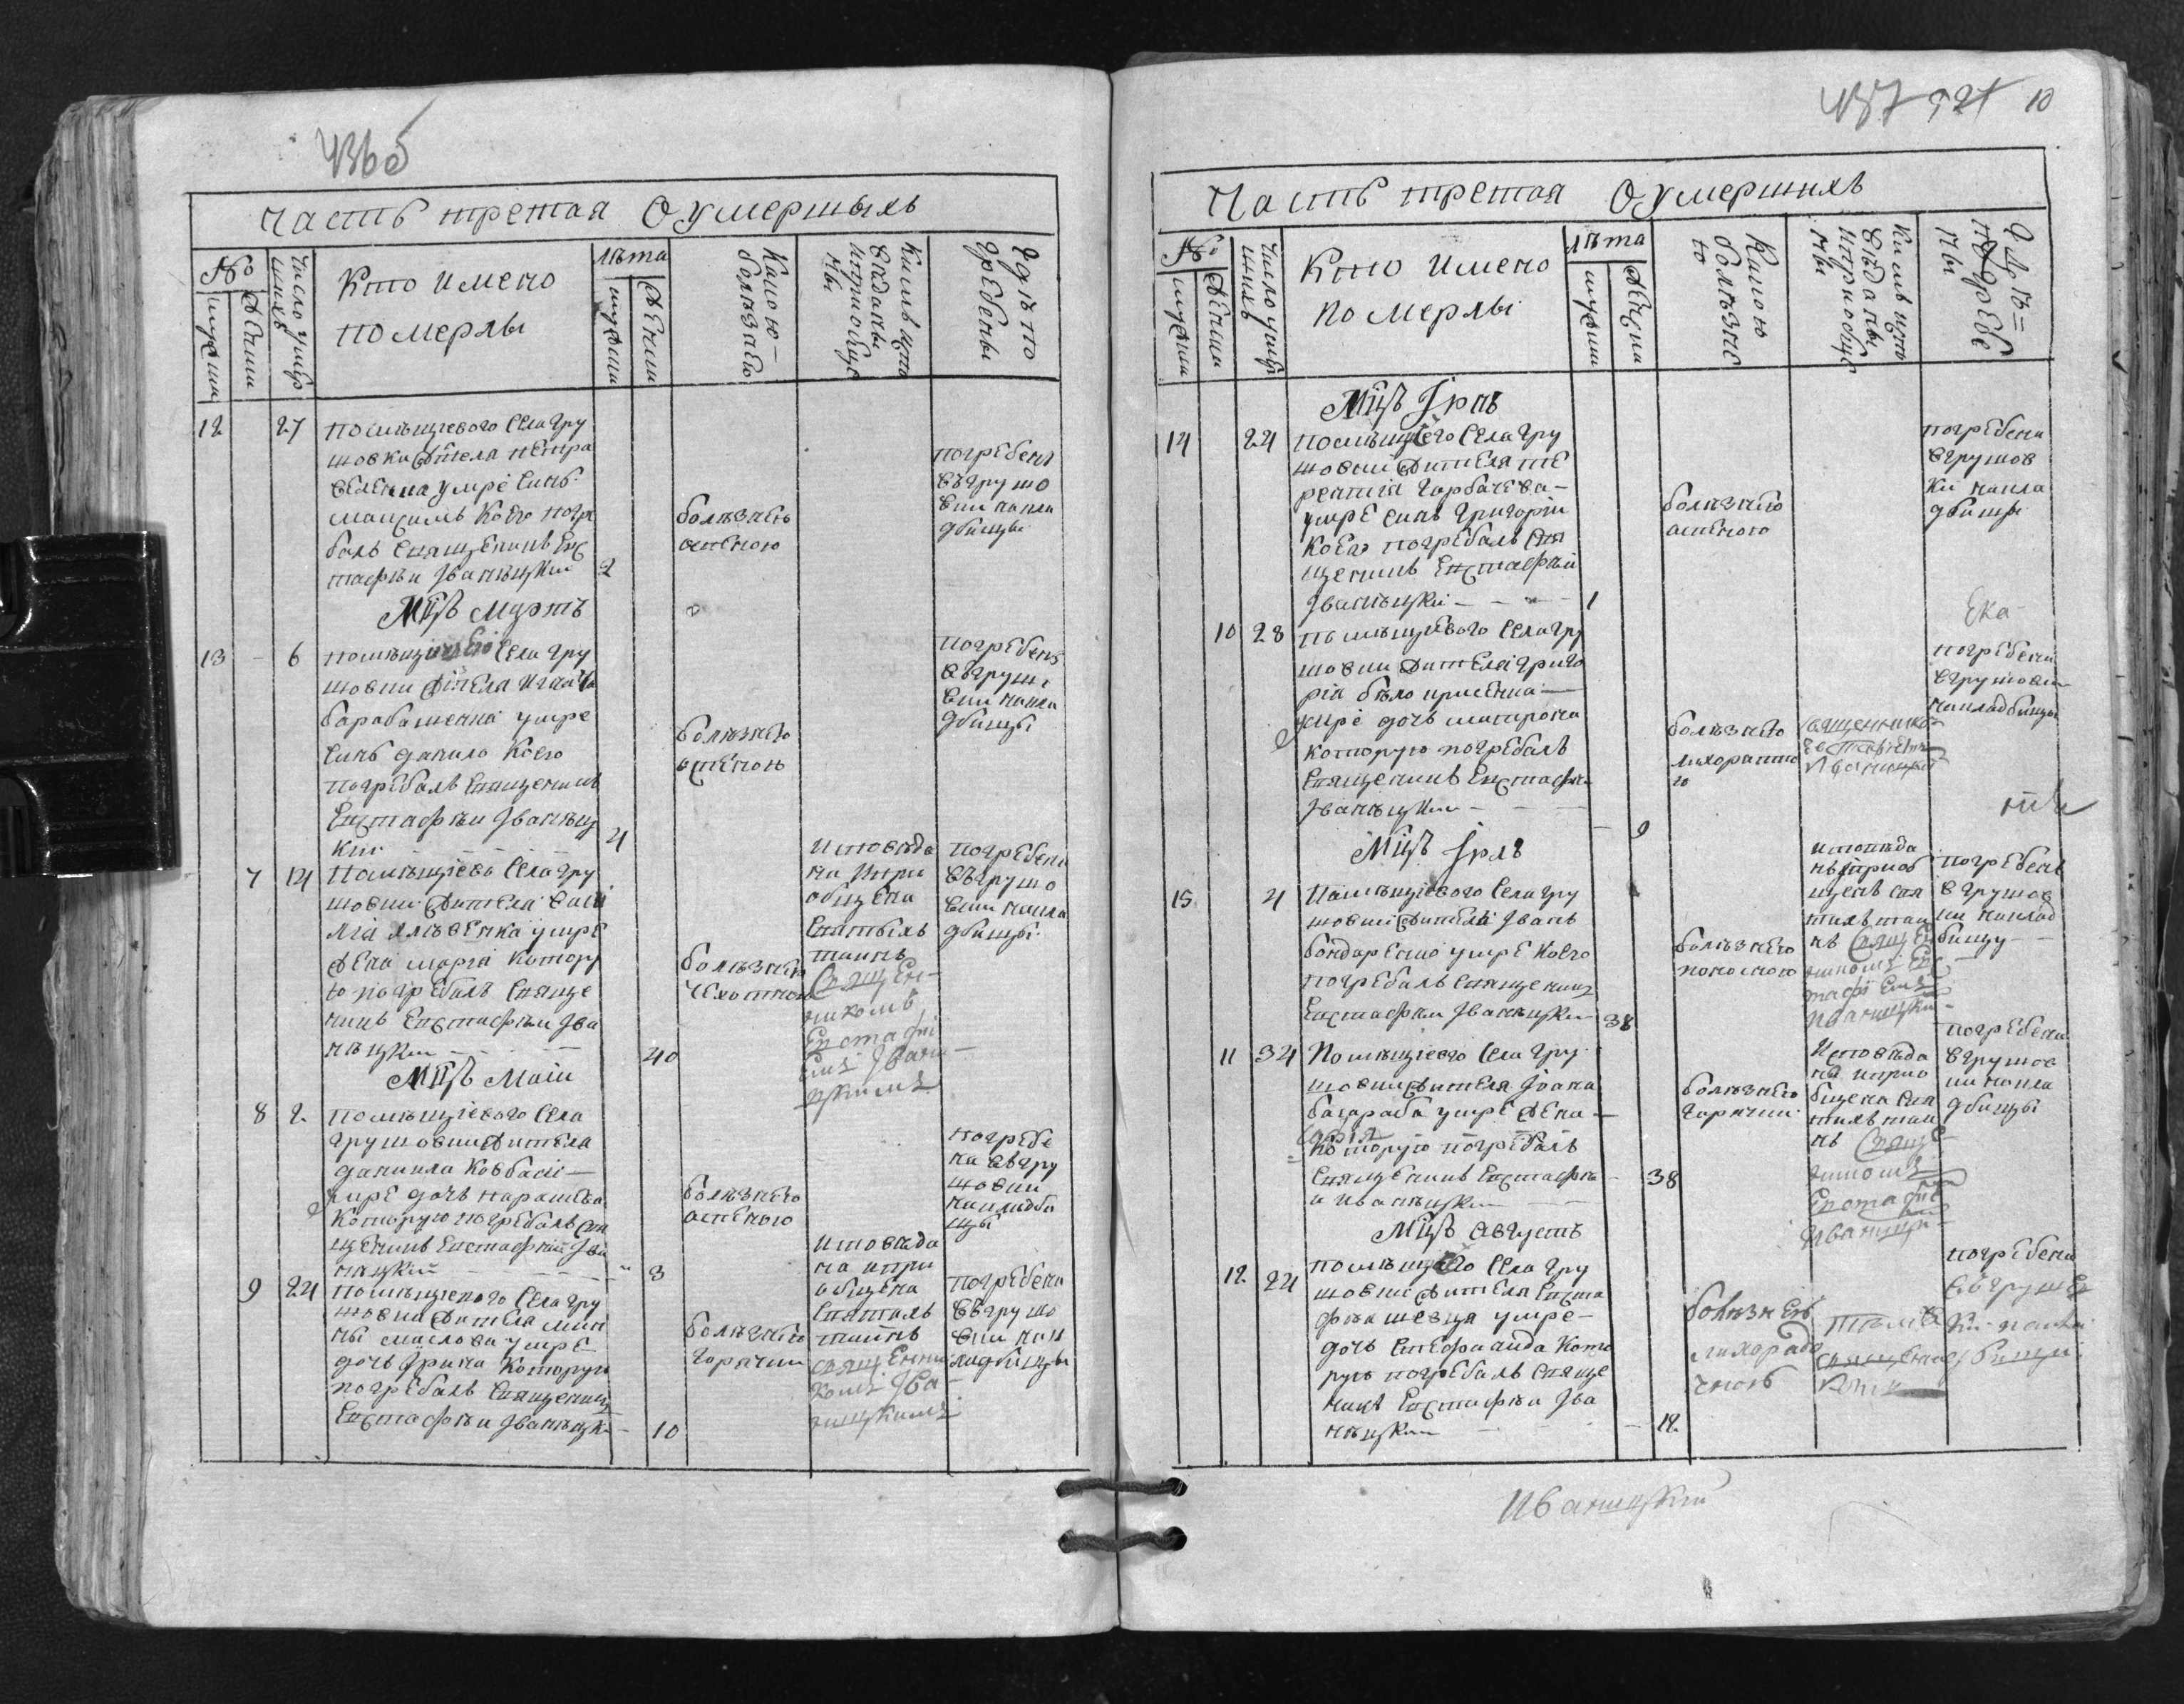 436б
Часть третая О умершыхъ
№
мужска
женска
Число умер
шихъ
Кто имено
померлы
лѣта
мужска
женска
Какою
болезнѣю
Кимъ испо
вѣданы
и приобще
ны
Гдѣ по
гребены
12 27 помѣщичего села Гру
шовки жителя Петра
умре синъ
Максимъ коего погре
балъ священикъ Евс
тафѣи Іванѣцкии 2
болѣзнѣю
оспеною
погребенъ
въ Грушо
вки накла
дбищы
Мцъ Мартъ
13 6 помѣщичего села Гру
шовки жителя
барабашенка умре
синъ данило коего
погребалъ священикъ
Евстафѣи Іванѣц
кии 4
болѣзнѣю
оспеною
погребенъ
въ Груш
вки накла
дбищы
7 14 помѣщичего села Гру
шовки жителя Васи
лія умре
жена марія котору
ю погребалъ свяще
никъ Евстафѣи Іва
нѣцкии 40
болѣзнѣю
чехотною
исповѣда
на и при
общена
Святыхъ
таинъ
Священ-
никомъ
Евстафі
емъ Івани
цкимъ
погребена
въ Грушо
вки накла
дбищы
Мцъ Маіи
8 2 помѣщичего села
Грушовки жителя
данила Ковбасы
умре дочь параскева
которую погребалъ свя
щеникъ Евстафѣи Іва
нѣцкии 3
болѣзнѣю
оспеною
погребе
на въ Гру
шовки
накладби
щы
9 24 помѣщичего села Гру
шовки жителя
маслова умре
дочь Ірина которую
погребалъ священикъ
Евстафѣи Іванѣцки 10
болѣзнѣю
горячки
исповѣда
на и при
общена
Святыхъ
таинъ
священни
комъ Іва
ницкимъ
погребена
въ Грушо
вки нак
ладбищы
437 921 10
Часть третая О умершихъ
№
мужска
женска
Число умер
шихъ
Кто имено
померлы
лѣта
мужска
женска
Какою
болезнѣ
ю
Кимъ испо
вѣданы
и приобще
ны
Гдѣ по=
гребе
ны
Мцъ
14 24 помѣщичего села Гру
шовки жителя Те
рентія Горбачева
умре синъ Григорій
коего погребалъ свя
щеникъ Евстафѣи
Іванѣцки 1
болѣзнѣю
оспеною
погребени
в Грушов
ки накла
дбищы
Ека
10 28 помѣщичего села Гру
шовки жителя Григо
рія
умре дочь матрона
которую погребалъ
священикъ Евстафѣи
Іванѣцкии 9
болѣзнѣю
лихоратко
ю
священико
Евставіемъ
Іваницкій
погребени
в Грушовки
накладбищы
Мцъ Іуль
15 4 помѣщичевого села Гру
шовки жителъ Іванъ
бондаренко умре коего
погребалъ священикъ
Евстафѣи Іванѣцки 38
болѣзнѣю
исповѣда
нъ и приоб
щенъ свя
тихъ таи
нъ Священ
никомъ Евс
тафіемъ
Іваницки
погребенъ
в Грушов
ки наклад
бищу
11 34 помѣщичего села Гру
шовки жителя Іоана
умре жена
которую погребалъ
священикъ Евстафѣ
и Иванѣцки 38
болѣзнѣю
горячки
исповѣда
на и прио
бщена Свя
тихъ таи
нъ Свяще
никомъ
Евстафіе
Иваници
погребена
в Грушов
ки накла
дбищы
Мцъ Августъ
12 24 помѣщичего села Гру
шовки жителя Евста
фѣа шевця умре
дочь Стефанида кото
рую погребалъ свяще
никъ Евстафѣи Іва
нѣцкии 12
болѣзнею
лихорадо
чною
погребена
въ Груше
Иваницкій